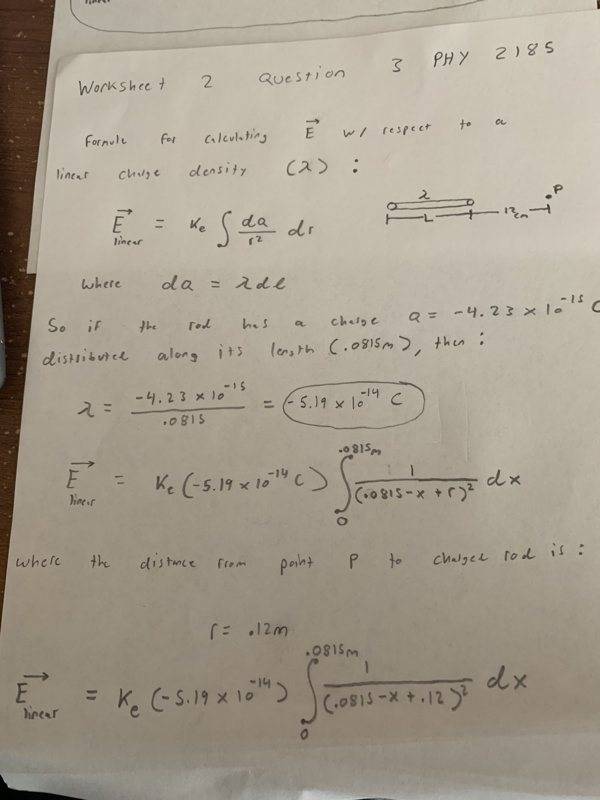 Worksheet 2 Question 3 PHY 2185
Formula for calculating E⃗ w/ respect to a
linear charge density (λ) :
λ
L
12cm
P
E⃗ linear = Ke ∫ da/r² dr
where da = λdl
So if the rod has a charge a = -4.23 x 10^-15 C
distributed along its length (.0815m), then :
λ = -4.23 x 10^-15 / .0815 = -5.19 x 10^-14 C
E⃗ linear = Ke (-5.19 x 10^-14 C) ∫_0^.0815m 1/(.0815-x+r)² dx
where the distance from point P to charged rod is :
r = .12m
E⃗ linear = Ke (-5.19 x 10^-14) ∫_0^.0815m 1/(.0815-x+.12)² dx